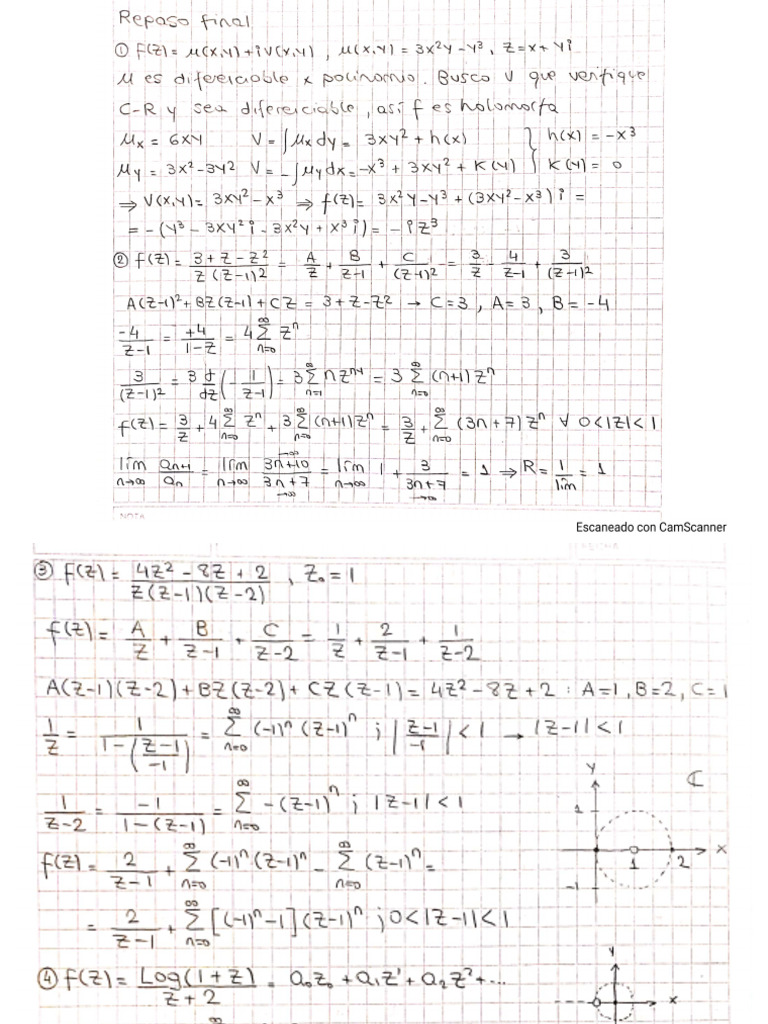 Repaso final
① f(z) = u(x,y) + i v(x,y) , u(x,y) = 3x²y - y³ , z = x + yi
u es difereciable x polinomio. Busco v que verifique
C-R y sea difereiciable, así f es holomorfa
ux = 6xy   v = ∫ux dy = 3xy² + h(x)   } h(x) = -x³
uy = 3x² - 3y²   v = -∫uy dx = -x³ + 3xy² + k(y)   } k(y) = 0
⇒ v(x,y) = 3xy² - x³ ⇒ f(z) = 3x²y - y³ + (3xy² - x³) i =
= -(y³ - 3xy² i - 3x²y + x³ i) = -i z³
② f(z) = (3 + z - z²)/(z (z-1)²) = A/z + B/(z-1) + C/(z-1)² = 3/z - 4/(z-1) + 3/(z-1)²
A(z-1)² + Bz(z-1) + Cz = 3 + z - z² → C = 3 , A = 3 , B = -4
-4/(z-1) = +4/(1-z) = 4 ∑_{n=0}^{∞} zⁿ
3/(z-1)² = 3 d/dz (-1/(z-1)) = 3 ∑_{n=1}^{∞} n zⁿ⁻¹ = 3 ∑_{n=0}^{∞} (n+1) zⁿ
f(z) = 3/z + 4 ∑_{n=0}^{∞} zⁿ + 3 ∑_{n=0}^{∞} (n+1) zⁿ = 3/z + ∑_{n=0}^{∞} (3n+7) zⁿ ∀ 0<|z|<1
lím_{n→∞} aₙ₊₁/aₙ = lím_{n→∞} (3n+10)/(3n+7) = lím_{n→∞} 1 + 3/(3n+7) = 1 ⇒ R = 1/lím = 1
→∞ →∞ →∞
NOTA
Escaneado con CamScanner
③ f(z) = (4z² - 8z + 2)/(z (z-1)(z-2)) , z₀ = 1
f(z) = A/z + B/(z-1) + C/(z-2) = 1/z + 2/(z-1) + 1/(z-2)
A(z-1)(z-2) + Bz(z-2) + Cz(z-1) = 4z² - 8z + 2 : A=1, B=2, C=1
1/z = 1/(1-((z-1)/-1)) = ∑_{n=0}^{∞} (-1)ⁿ (z-1)ⁿ ; |(z-1)/-1| < 1 → |z-1| < 1
1/(z-2) = -1/(1-(z-1)) = ∑_{n=0}^{∞} -(z-1)ⁿ ; |z-1| < 1
y ℂ
1
x
1 2
-1
f(z) = 2/(z-1) + ∑_{n=0}^{∞} (-1)ⁿ (z-1)ⁿ - ∑_{n=0}^{∞} (z-1)ⁿ =
= 2/(z-1) + ∑_{n=0}^{∞} [(-1)ⁿ - 1] (z-1)ⁿ ; 0<|z-1|<1
④ f(z) = Log(1+z)/(z+2) = a₀z₀ + a₁z¹ + a₂z² + ...
y
x
∞